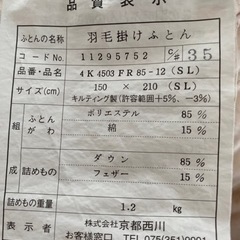 品質表示
ふとんの名称 羽毛掛けふとん
コードNo. 11295752 C/# 35
品番・品名 4K4503FR85-12(SL)
サイズ(cm) 150 × 210 (SL)
キルティング製(許容範囲+5%、-3%)
組成 ふとんがわ ポリエステル 85%
綿 15%
詰めもの ダウン 85%
フェザー 15%
詰めもの重量 1.2 kg
表示者 株式会社 京都西川
お客様窓口 TEL 075(351)0001